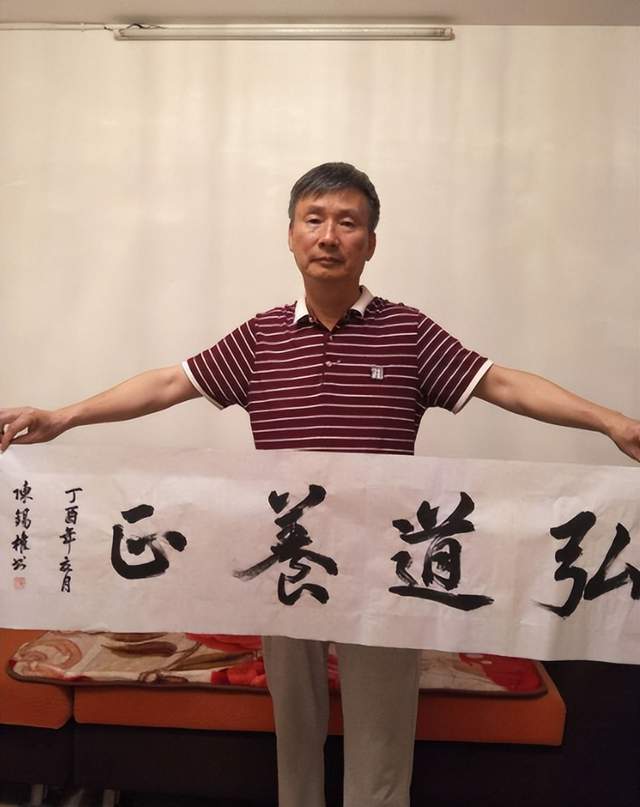 弘道養正
丁酉年六月
陳錫權书